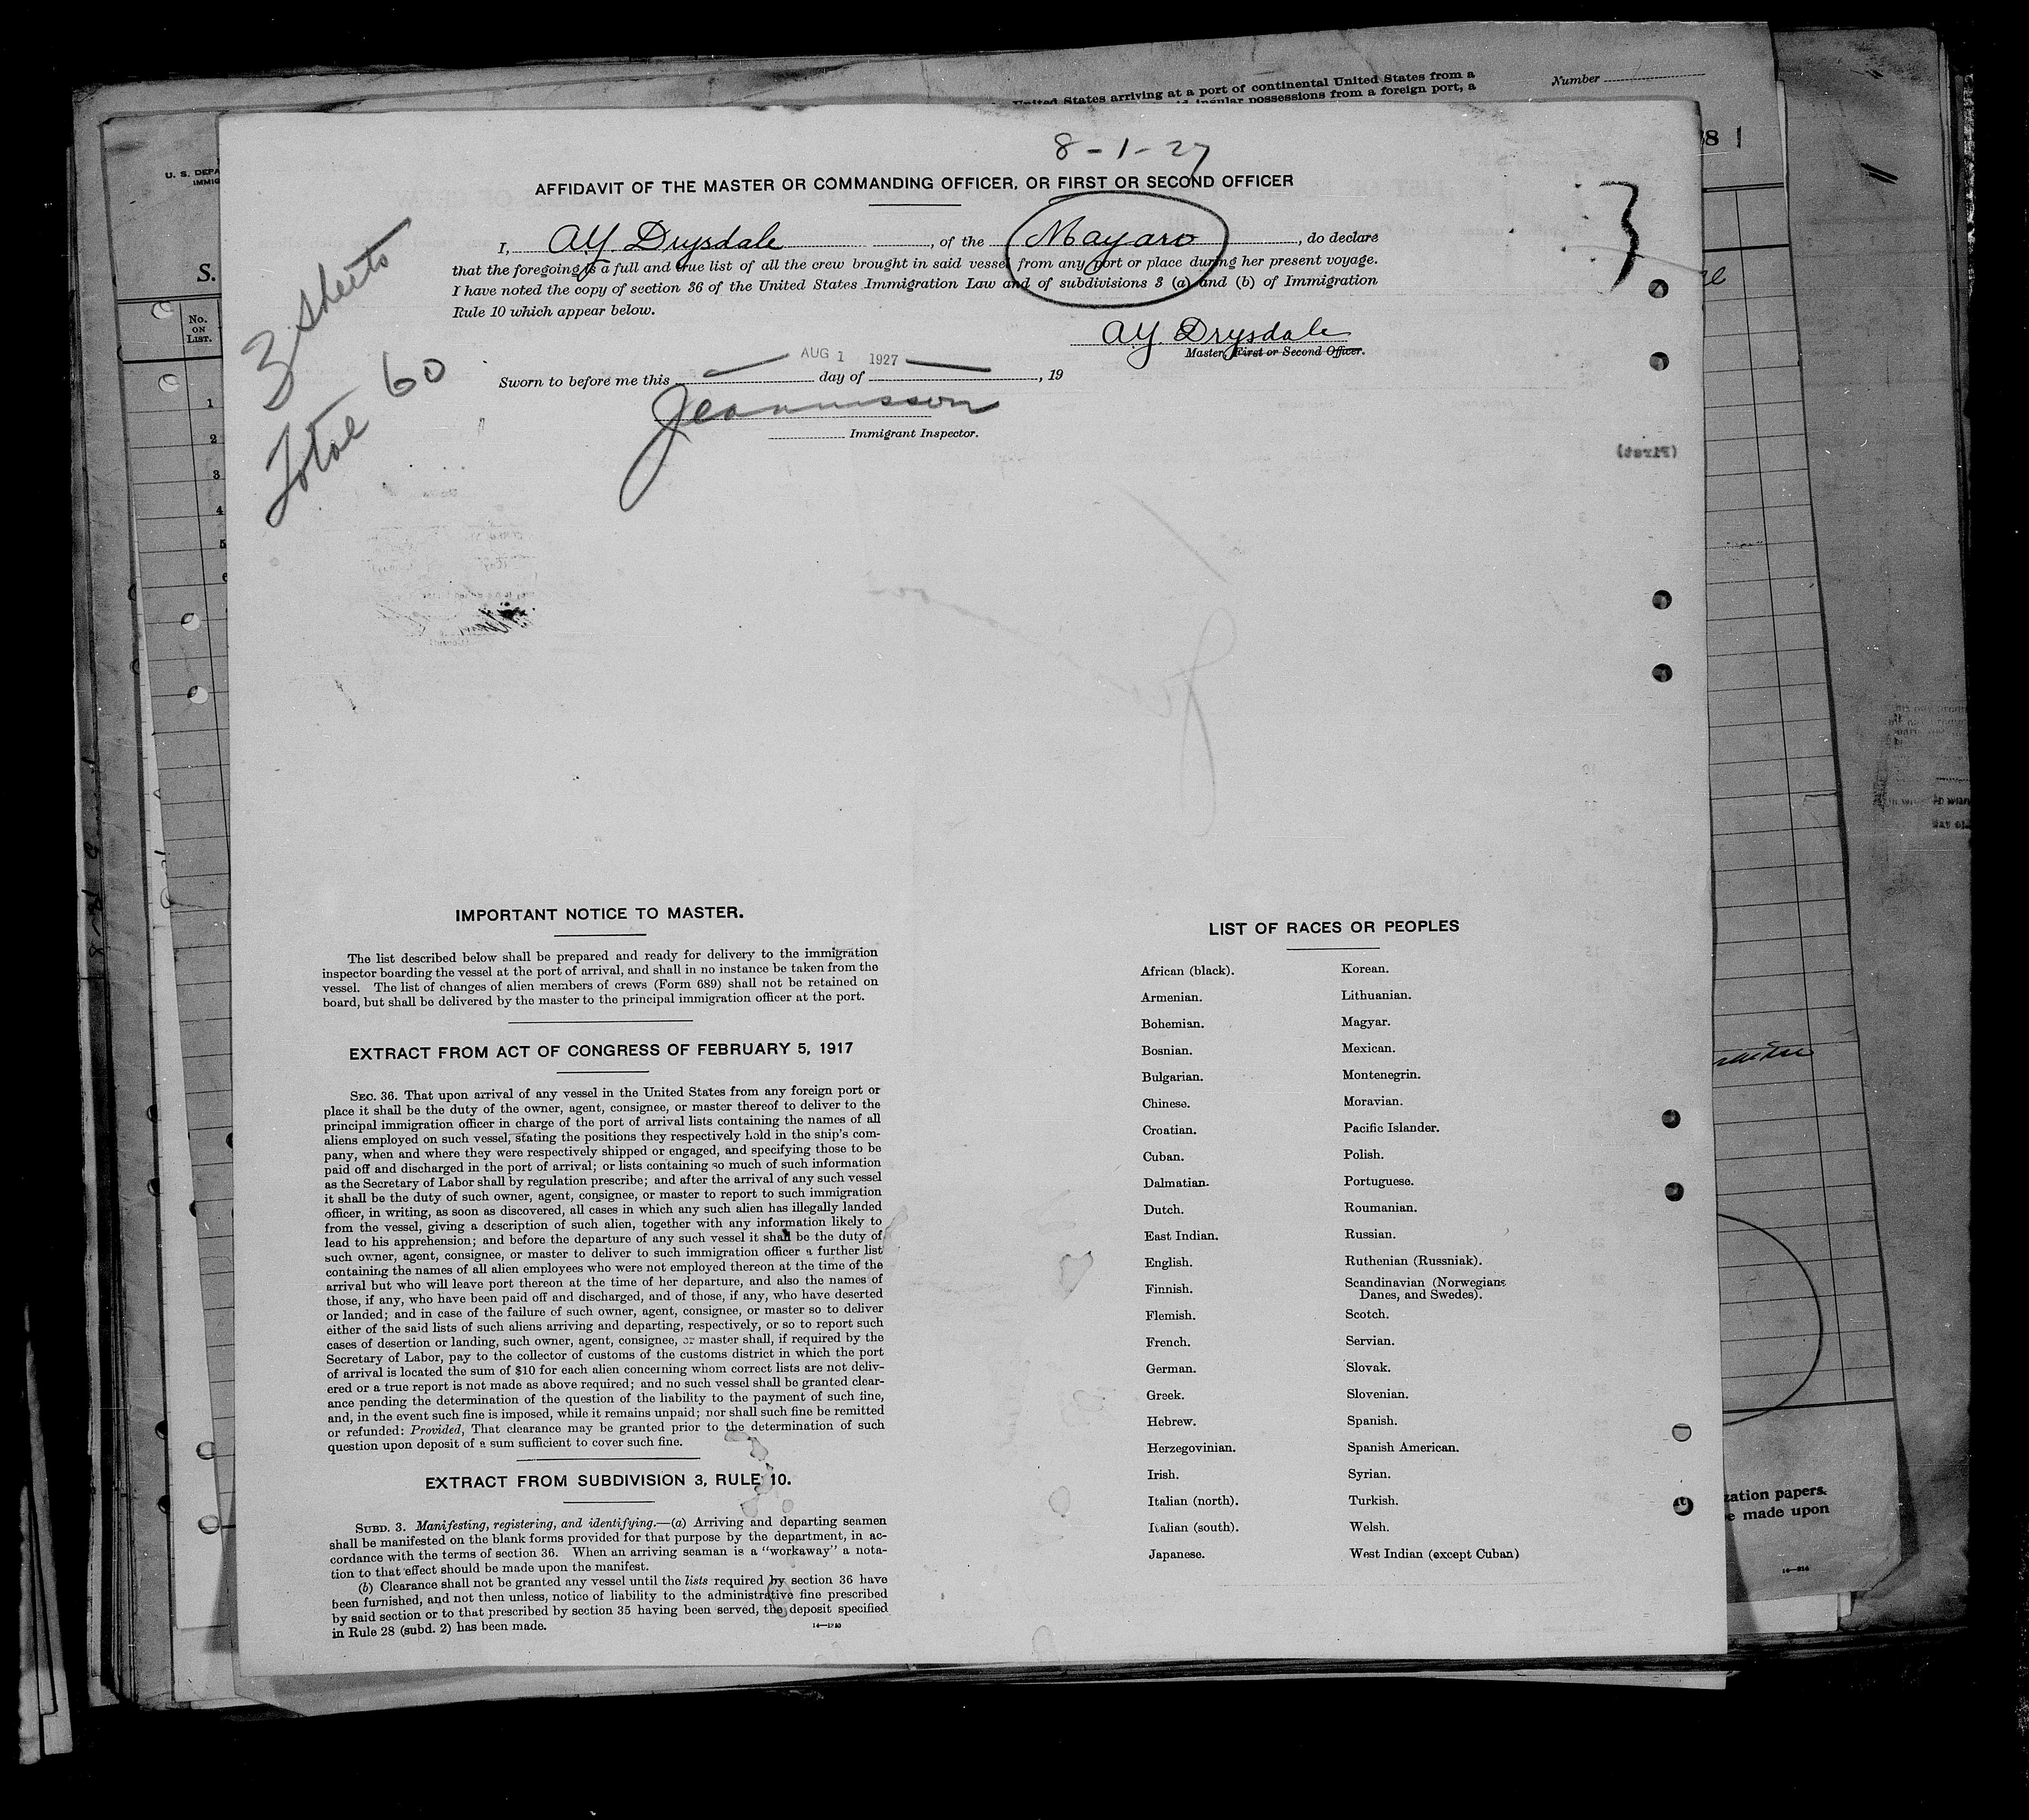 United States arriving at a port of continental United States from a
insular possessions from a foreign port, a
Number
U. S. DEPA
IMMIG
S.
No.
ON
LIST.
1
2
3
4
5
8-1-27
3
AFFIDAVIT OF THE MASTER OR COMMANDING OFFICER, OR FIRST OR SECOND OFFICER
I, A.Y. Drysdale, of the Mayaro, do declare
that the foregoing is a full and true list of all the crew brought in said vessel from any port or place during her present voyage.
I have noted the copy of section 36 of the United States Immigration Law and of subdivisions 3 (a) and (b) of Immigration
Rule 10 which appear below.
A.Y. Drysdale
Master, First or Second Officer.
3 sheets
Total 60
AUG 1 1927
Sworn to before me this day of , 19
Immigrant Inspector.
(First)
IMPORTANT NOTICE TO MASTER.
The list described below shall be prepared and ready for delivery to the immigration
inspector boarding the vessel at the port of arrival, and shall in no instance be taken from the
vessel. The list of changes of alien members of crews (Form 689) shall not be retained on
board, but shall be delivered by the master to the principal immigration officer at the port.
EXTRACT FROM ACT OF CONGRESS OF FEBRUARY 5, 1917
SEC. 36. That upon arrival of any vessel in the United States from any foreign port or
place it shall be the duty of the owner, agent, consignee, or master thereof to deliver to the
principal immigration officer in charge of the port of arrival lists containing the names of all
aliens employed on such vessel, stating the positions they respectively hold in the ship's com-
pany, when and where they were respectively shipped or engaged, and specifying those to be
paid off and discharged in the port of arrival; or lists containing so much of such information
as the Secretary of Labor shall by regulation prescribe; and after the arrival of any such vessel
it shall be the duty of such owner, agent, consignee, or master to report to such immigration
officer, in writing, as soon as discovered, all cases in which any such alien has illegally landed
from the vessel, giving a description of such alien, together with any information likely to
lead to his apprehension; and before the departure of any such vessel it shall be the duty of
such owner, agent, consignee, or master to deliver to such immigration officer a further list
containing the names of all alien employees who were not employed thereon at the time of the
arrival but who will leave port thereon at the time of her departure, and also the names of
those, if any, who have been paid off and discharged, and of those, if any, who have deserted
or landed; and in case of the failure of such owner, agent, consignee, or master so to deliver
either of the said lists of such aliens arriving and departing, respectively, or so to report such
cases of desertion or landing, such owner, agent, consignee, or master shall, if required by the
Secretary of Labor, pay to the collector of customs of the customs district in which the port
of arrival is located the sum of $10 for each alien concerning whom correct lists are not deliv-
ered or a true report is not made as above required; and no such vessel shall be granted clear-
ance pending the determination of the question of the liability to the payment of such fine,
and, in the event such fine is imposed, while it remains unpaid; nor shall such fine be remitted
or refunded: Provided, That clearance may be granted prior to the determination of such
question upon deposit of a sum sufficient to cover such fine.
EXTRACT FROM SUBDIVISION 3, RULE 10.
SUBD. 3. Manifesting, registering, and identifying.—(a) Arriving and departing seamen
shall be manifested on the blank forms provided for that purpose by the department, in ac-
cordance with the terms of section 36. When an arriving seaman is a "workaway" a nota-
tion to that effect should be made upon the manifest.
(b) Clearance shall not be granted any vessel until the lists required by section 36 have
been furnished, and not then unless, notice of liability to the administrative fine prescribed
by said section or to that prescribed by section 35 having been served, the deposit specified
in Rule 28 (subd. 2) has been made.
LIST OF RACES OR PEOPLES
African (black). Korean.
Armenian. Lithuanian.
Bohemian. Magyar.
Bosnian. Mexican.
Bulgarian. Montenegrin.
Chinese. Moravian.
Croatian. Pacific Islander.
Cuban. Polish.
Dalmatian. Portuguese.
Dutch. Roumanian.
East Indian. Russian.
English. Ruthenian (Russniak).
Finnish. Scandinavian (Norwegians
Danes, and Swedes).
Flemish. Scotch.
French. Servian.
German. Slovak.
Greek. Slovenian.
Hebrew. Spanish.
Herzegovinian. Spanish American.
Irish. Syrian.
Italian (north). Turkish.
Italian (south). Welsh.
Japanese. West Indian (except Cuban)
zation papers.
e made upon